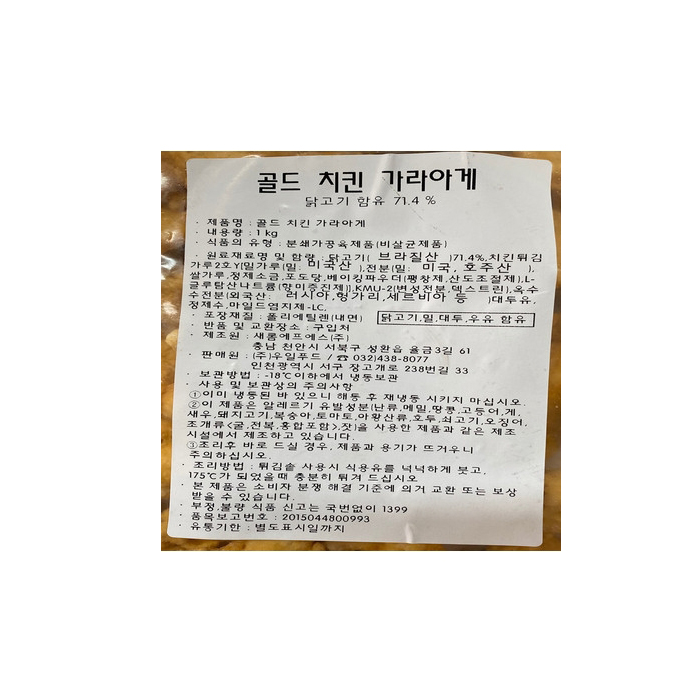 골드 치킨 가라아게
닭고기 함유 71.4 %
· 제품명 : 골드 치킨 가라아게
· 내용량 : 1 kg
· 식품의 유형 : 분쇄가공육제품(비살균제품)
· 원료재료명 및 함량 : 닭고기( 브라질산 )71.4%,치킨튀김
가루2호Y[밀가루(밀: 미국산 ),전분(밀: 미국, 호주산 ),
쌀가루,정제소금,포도당,베이킹파우더(팽창제,산도조절제),L-
글루탐산나트륨(향미증진제)],KMU-2(변성전분,덱스트린),옥수
수전분(외국산: 러시아,헝가리,세르비아 등 )대두유,
정제수,마일드염지제-LC,
· 포장재질 : 폴리에틸렌(내면) 닭고기,밀,대두,우유 함유
· 반품 및 교환장소 : 구입처
· 제조원 : 새롬에프에스(주)
충남 천안시 서북구 성환읍 율금3길 61
· 판매원 : (주)우일푸드 / ☎ 032)438-8077
인천광역시 서구 장고개로 238번길 33
· 보관방법 : -18℃이하에서 냉동보관
· 사용 및 보관상의 주의사항
①이미 냉동된 바 있으니 해동 후 재냉동 시키지 마십시오.
②이 제품은 알레르기 유발성분(난류,메밀,땅콩,고등어,게,
새우,돼지고기,복숭아,토마토,아황산류,호두,쇠고기,오징어,
조개류<굴,전복,홍합포함>,잣)을 사용한 제품과 같은 제조
시설에서 제조하고 있습니다.
③조리후 바로 드실 경우, 제품과 용기가 뜨거우니
주의하십시오.
· 조리방법 : 튀김솥 사용시 식용유를 넉넉하게 붓고,
175℃가 되었을때 충분히 튀겨 드십시오
· 본 제품은 소비자 분쟁 해결 기준에 의거 교환 또는 보상
받을 수 있습니다.
· 부정,불량 식품 신고는 국번없이 1399
· 품목보고번호 : 2015044800993
· 유통기한 : 별도표시일까지